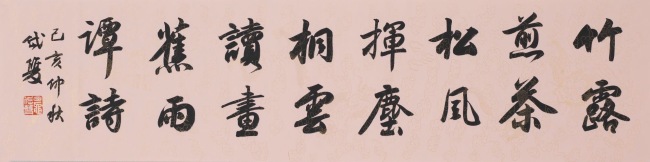 竹露
煎茶
松風
揮麈
桐雲
讀畫
蕉雨
譚詩
己亥仲秋